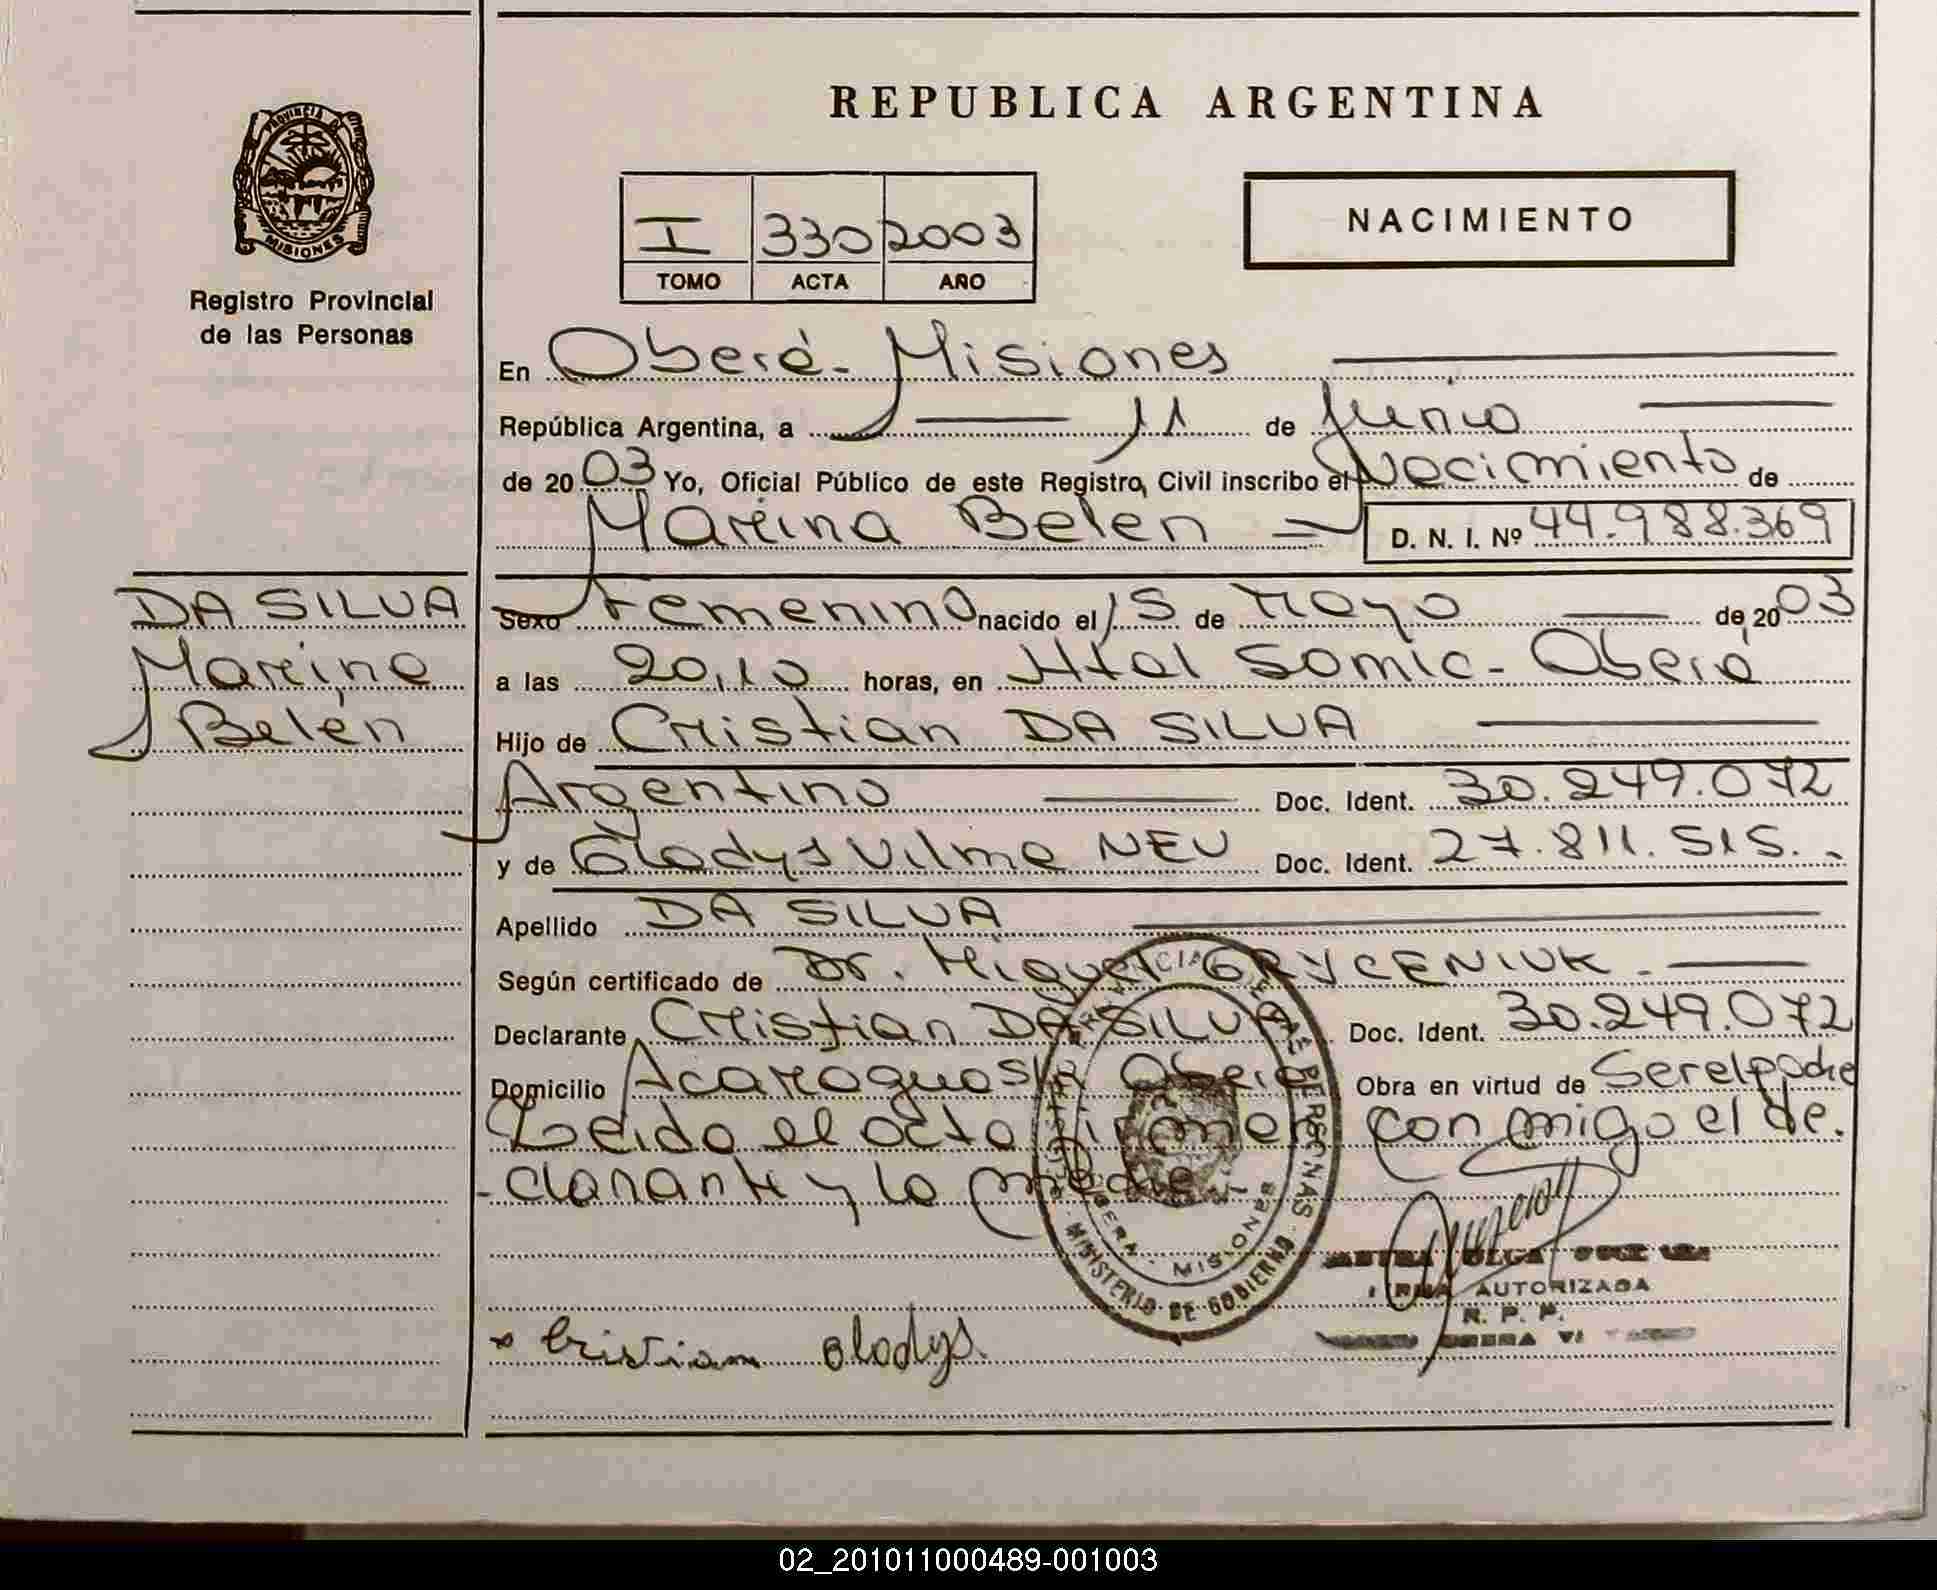 REPUBLICA ARGENTINA
PROVINCIA DE
MISIONES
Registro Provincial
de las Personas
I 330 2003
TOMO ACTA AÑO
NACIMIENTO
En Oberá - Misiones
República Argentina, a 11 de Junio
de 2003 Yo, Oficial Público de este Registro, Civil inscribo el Nacimiento de
Marina Belen D. N. I. Nº 44.988.369
DA SILVA
Marina
Belén
Sexo Femenino nacido el 15 de Mayo de 2003
a las 20,10 horas, en Htal Samic - Oberá
Hijo de Cristian DA SILVA
Argentino Doc. Ident. 30.249.072
y de Gladys Vilma NEU Doc. Ident. 27.811.515.-
Apellido DA SILVA
Según certificado de Dr. Miguel GRYCENIUK.
Declarante Cristian DA SILVA Doc. Ident. 30.249.072
Domicilio Oberá Obra en virtud de Ser el padre
Leido el acta firman conmigo el de.
-clarante y la madre
DE LAS PERSONAS
MISIONES
MINISTERIO DE GOBIERNO
OLGA
AUTORIZADA
R. P. P.
x Cristiam Gladys.
02_201011000489-001003